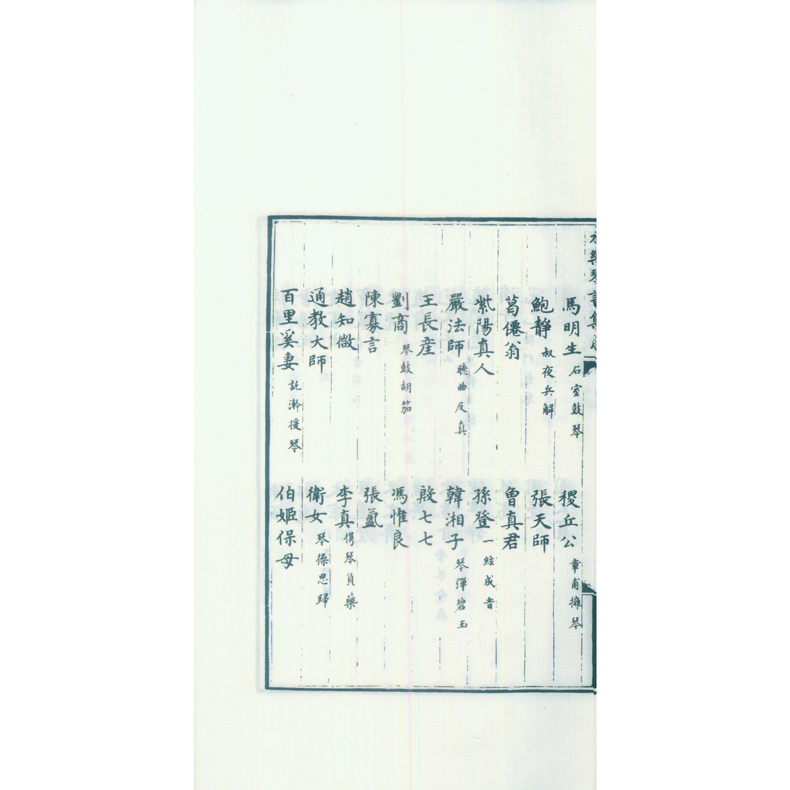 馬明生 石室鼓琴 稷丘公 章甫擁琴
鮑靜 叔夜兵解 張天師
葛僊翁 曾真君
紫陽真人 孫登 一絃成音
嚴法師 聽曲反真 韓湘子 琴彈碧玉
王長産 殷七七
劉商 琴鼓胡笳 馮惟良
陳寡言 張氳
趙知微 李真 携琴負藥
通教大師 衛女 琴操思歸
百里奚妻 託瀚援琴 伯姬保母